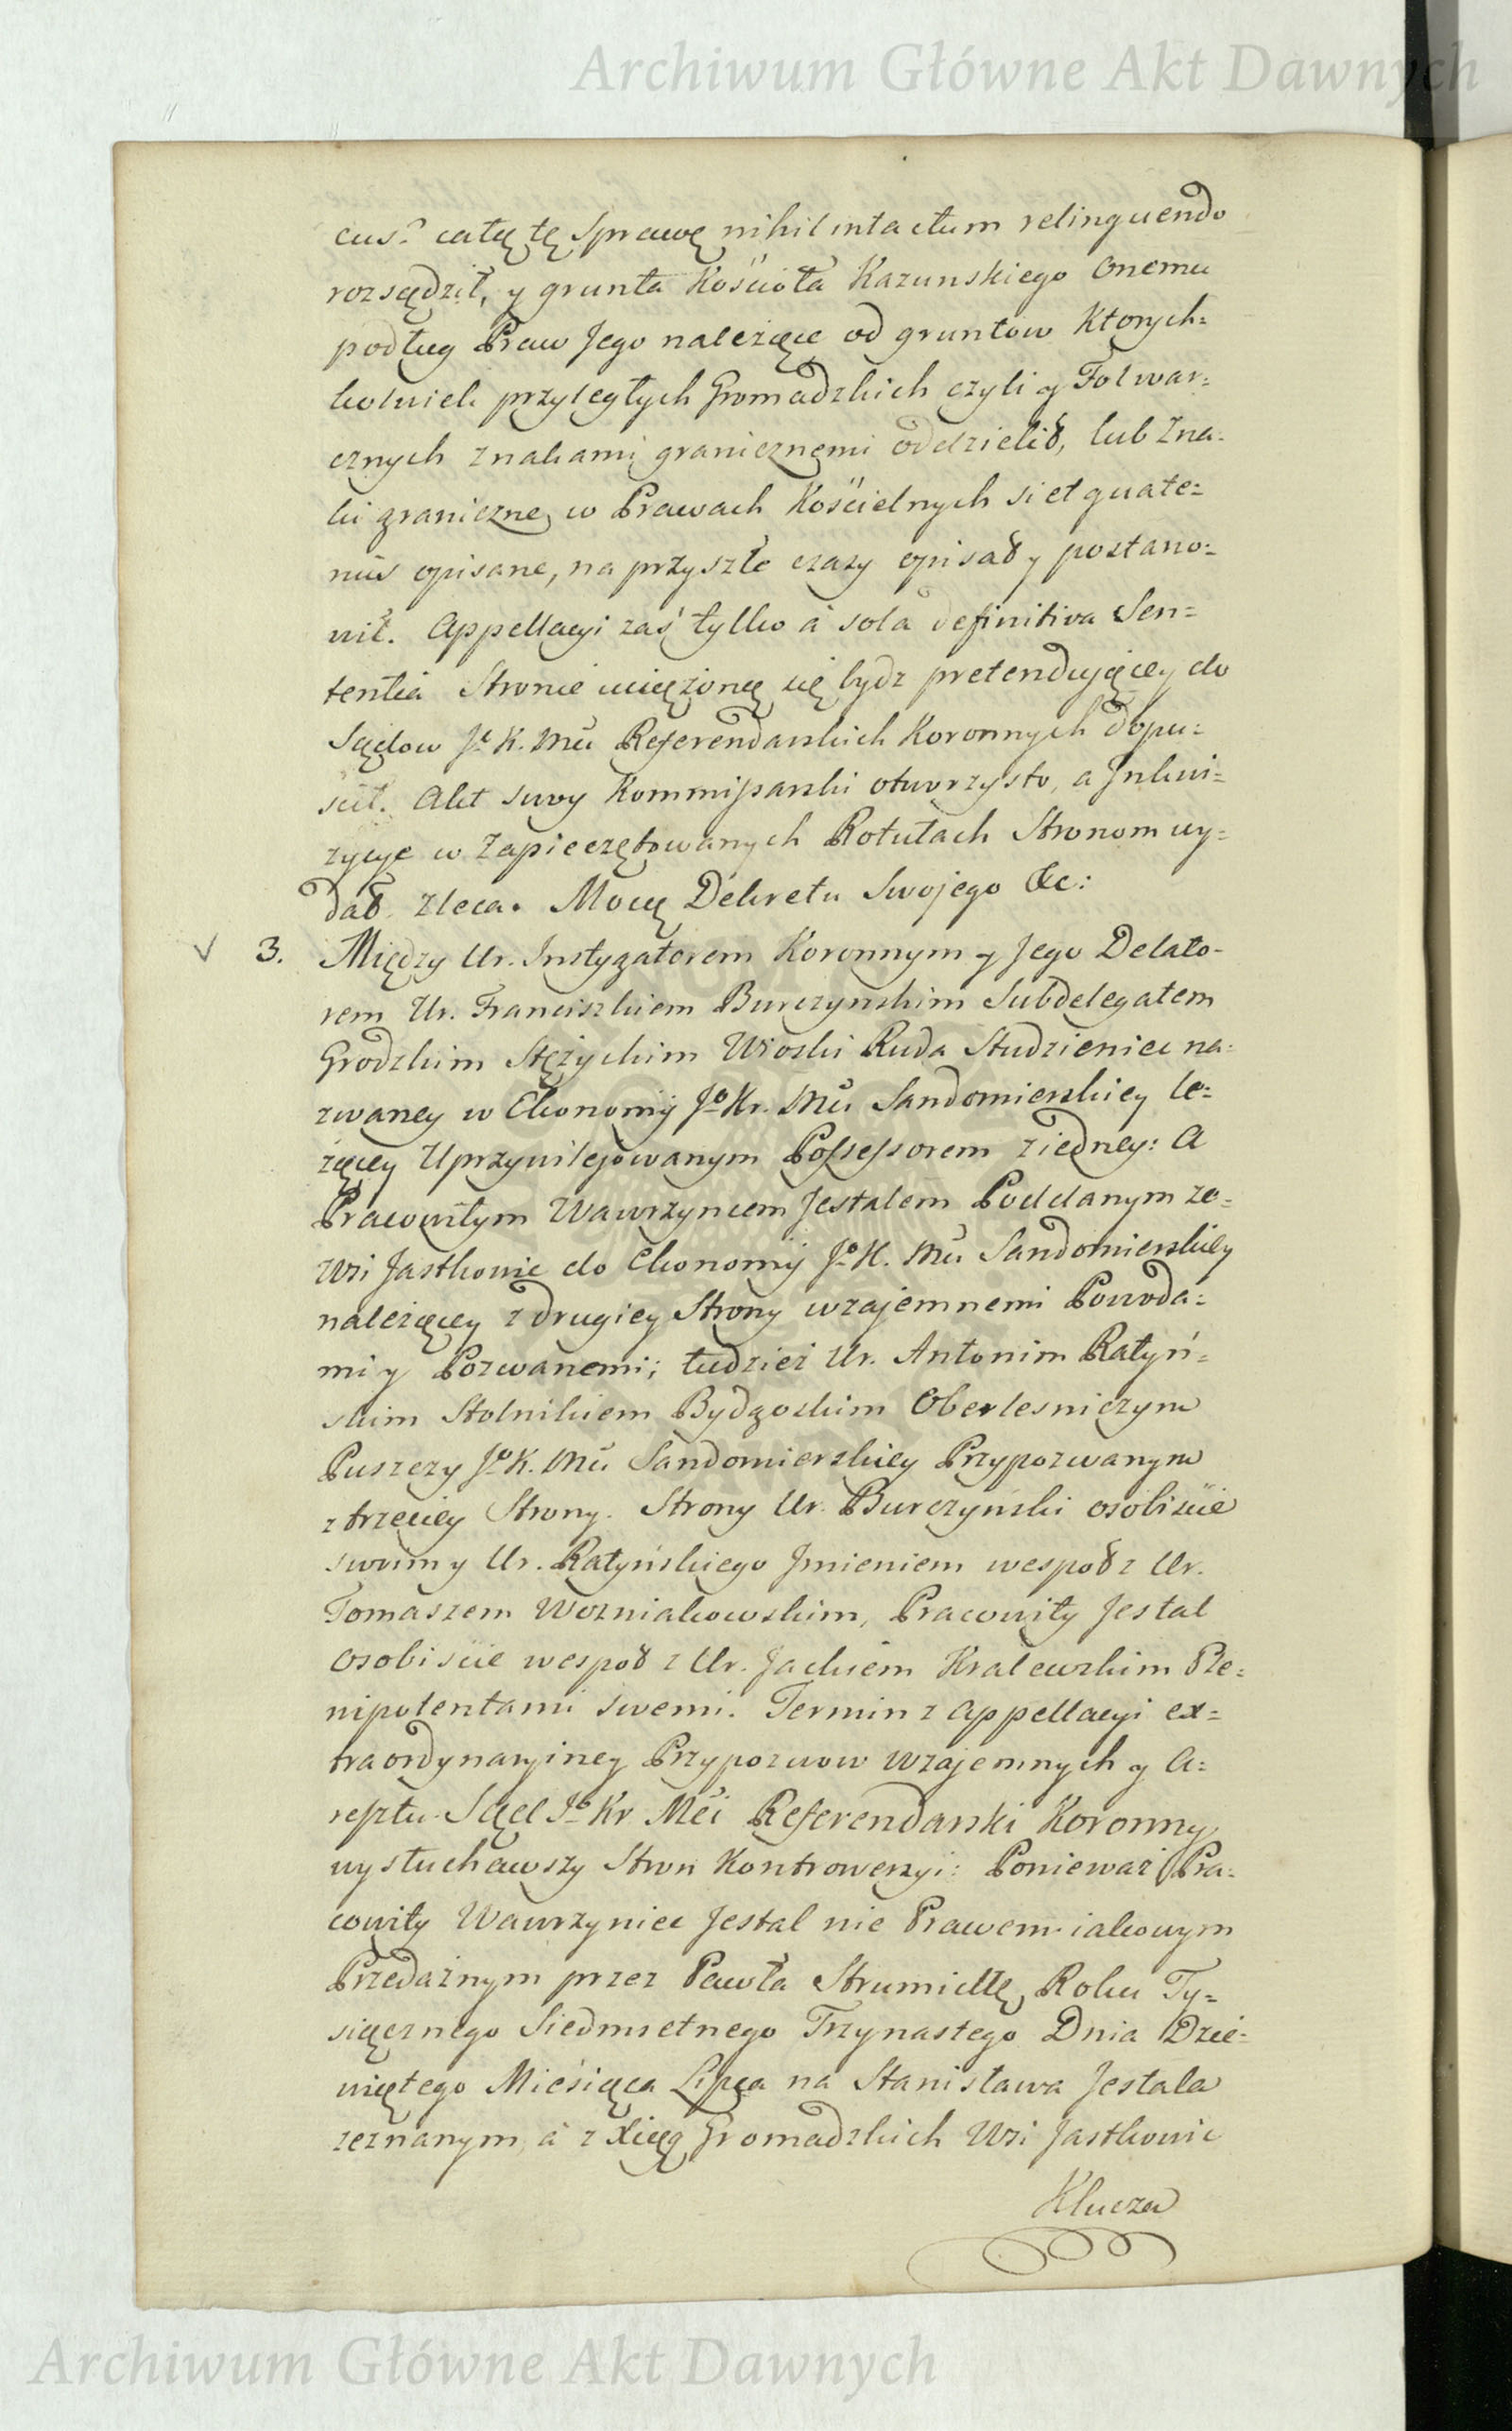 Archiwum Główne Akt Dawnych
cus? całą tę Sprawę nihil intactum relinquendo
rozsądził, y grunta Kościoła Kazunskiego onemu
podług Praw Jego należące od gruntow Ktorych=
kolwiek przyległych Gromadzkich czyli y Folwar=
cznych znakami granicznemi oddzielił, lub Zna=
ki graniczne w Prawach Kościelnych si et quate=
nus opisane, na przyszłe czasy opisał y postano=
wił. Appellacyi zaś tylko à sola definitiva Sen=
tentia Stronie uciążoną się bydz pretendującey do
Sądow Jº K. Mci Referendarskich Koronnych dopu=
ścił. Akt swoy Kommissarski otworzysto, a Inkwi=
zycye w Zapieczętowanych Rotułach Stronom wy=
dał zleca. Mocą Dekretu Swojego &c:
3. Między Ur. Instygatorem Koronnym y Jego Delato-
rem Ur. Franciszkiem Burczynskim Subdelegatem
Grodzkim Stężyckim Wioski Ruda Studzieniec na=
zwaney w Ekonomij Jº Kr. Mci Sandomierskiey le=
żącey Uprzywilejowanym Possessorem z iedney: A
Pracowitym Wawrzyncem Jestalem Poddanym ze=
Wsi Jastkowic do Ekonomij Jº K. Mci Sandomierskiey
należącey z drugiey Strony wzajemnemi Powoda=
mi y Pozwanemi; tudzież Ur. Antonim Ratyń=
skim Stolnikiem Bydgoskim Oberlesniczym
Puszczy Jº K. Mci Sandomierskiey Przypozwanym
z trzeciey Strony. Strony Ur. Burczyński osobiście
swoim y Ur. Ratyńskiego Jmieniem wespoł z Ur.
Tomaszem Wozniakowskim, Pracowity Jestal
osobiście wespoł z Ur. Jackiem Kralewskim Ple=
nipotentami swemi. Termin z Appellacyi ex=
traordynaryiney Przypozwow wzajemnych y A=
resztu. Sąd Jº Kr Mci Referendarski Koronny
wysłuchawszy Stron Kontrowersyi: Ponieważ Pra=
cowity Wawrzyniec Jestal nie Prawem iakowym
Przedażnym przez Pawła Strumidłę Roku Ty=
siącznego Siedmsetnego Trzynastego Dnia Dzie=
wiątego Miesiąca Lipca na Stanisława Jestala
zeznanym, à z Xiąg Gromadzkich Wsi Jastkowic
Klucza
Archiwum Główne Akt Dawnych